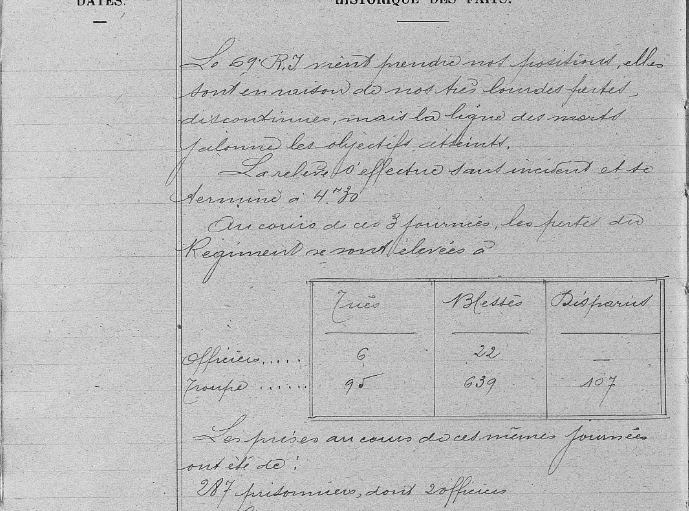 DATES.
HISTORIQUE DES FAITS.
Le 69e R.I vient prendre nos positions, elles
sont en raison de nos très lourdes pertes
discontinues, mais la ligne des morts
jalonne les objectifs atteints.
La relève s'effectue sans incident et se
termine à 4h30
Au cours de ces 3 journées, les pertes du
Régiment se sont élevées à
Tués Blessés Disparus
Officiers..... 6 22 —
Troupe ...... 95 639 107
Les prises au cours de ces mêmes journées
ont été de :
287 prisonniers, dont 2 officiers